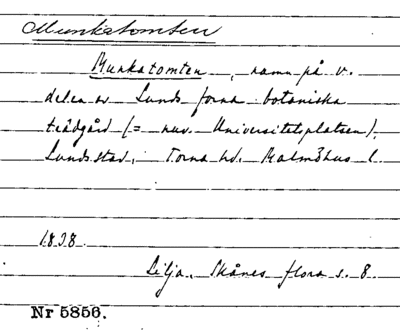 Munkatomten
Munkatomten, namn på v.
delen av Lunds forna botaniska
trädgård (= nuv. Universitetsplatsen),
Lunds stad, Torna hd. Malmöhus l.
1838.
Lilja, Skånes flora s. 8.
Nr 5856.